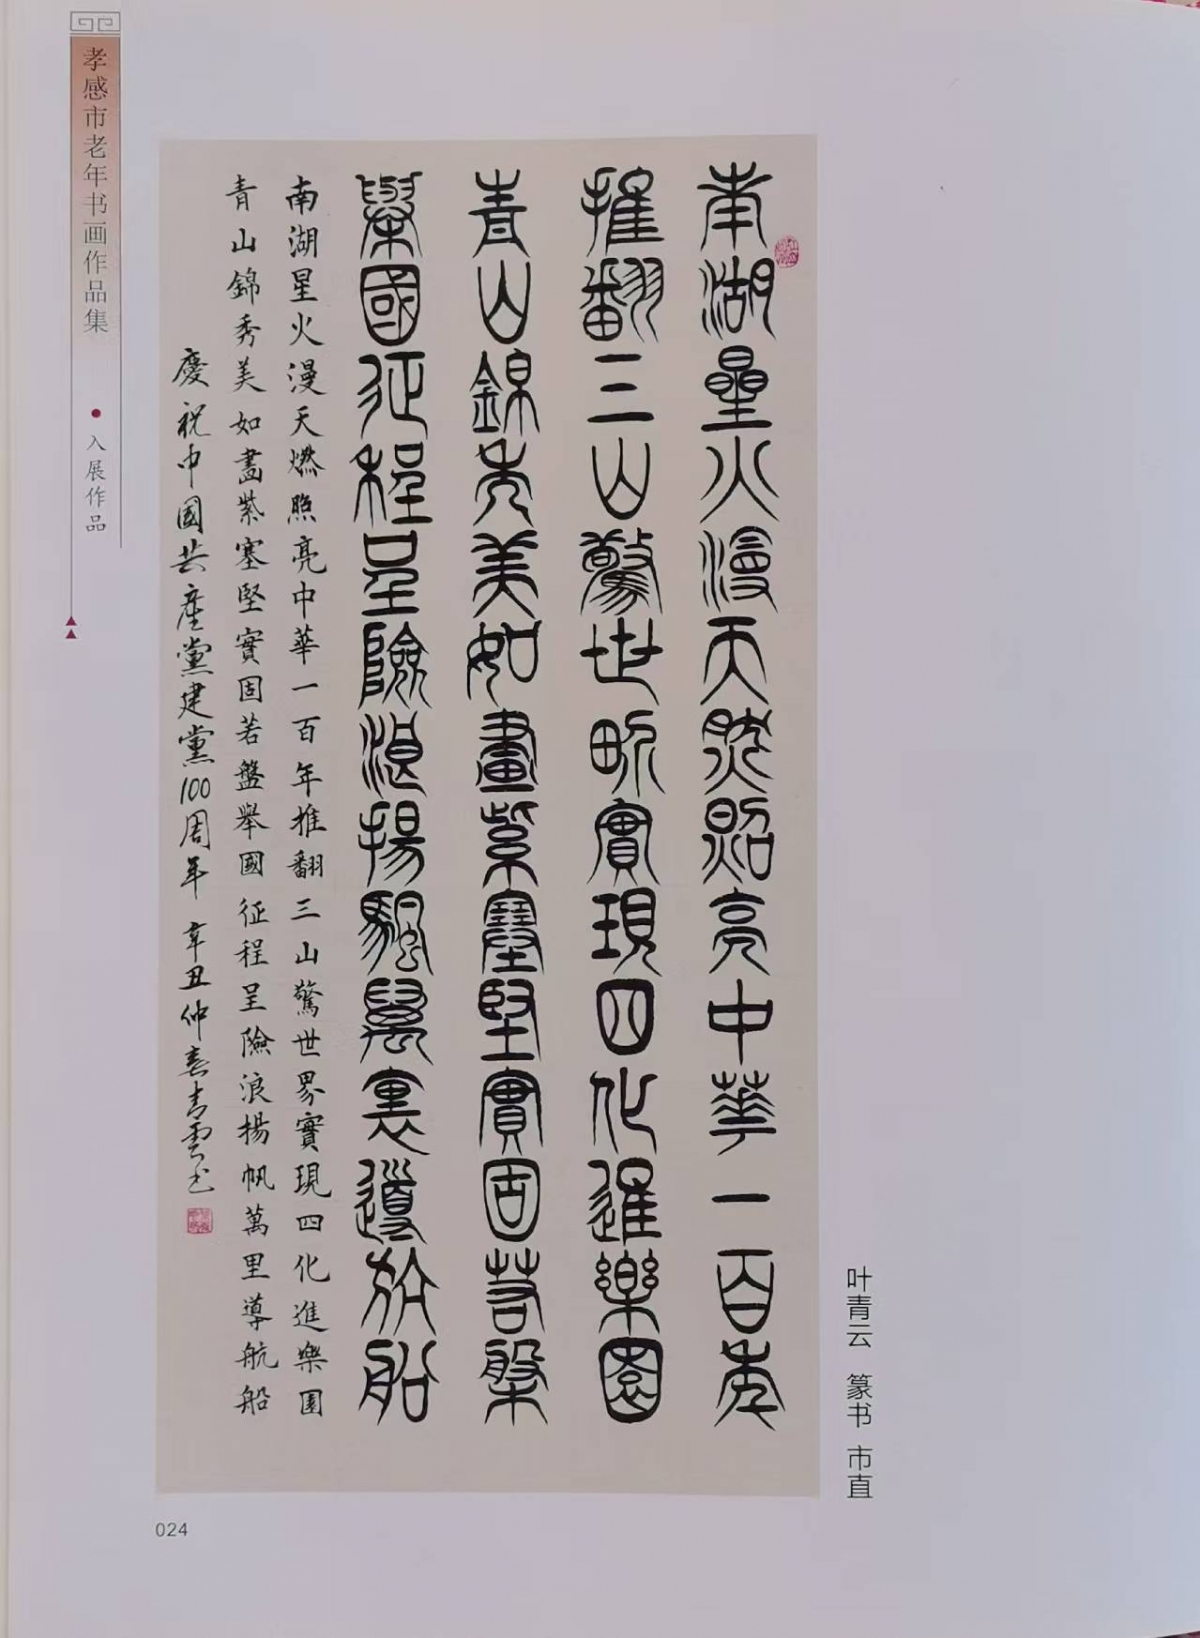 孝感市老年书画作品集
入展作品
南湖星火漫天然照亮中華一百年
推翻三山驚世界實現四化進樂園
青山錦秀美如畫紫塞堅實固若盤
舉國征程呈險浪揚帆萬里導航船
南湖星火漫天燃照亮中華一百年推翻三山驚世界實現四化進樂園
青山錦秀美如畫紫塞堅實固若盤舉國征程呈險浪揚帆萬里導航船
慶祝中國共產黨建黨100周年 辛丑仲春青雲书
叶青云 篆书 市直
024